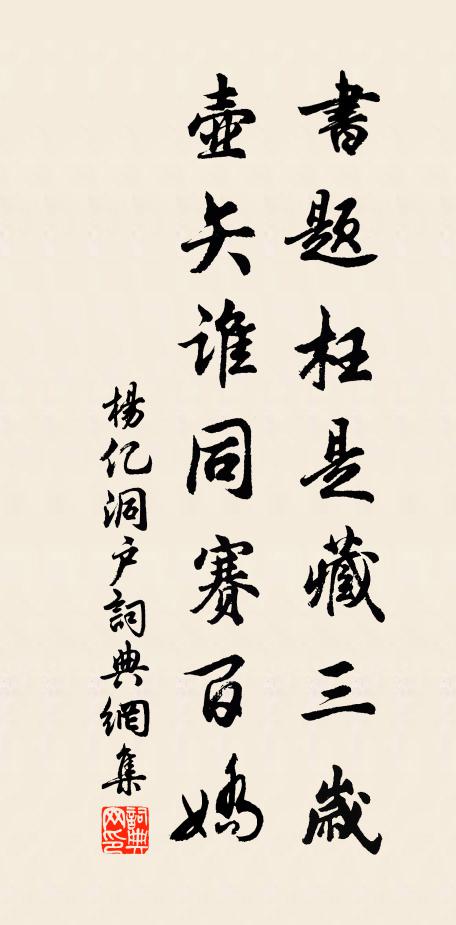 書題枉是藏三歲
壺矢誰同賽百嬌
楊亿洞户詞典網集
詞典網印